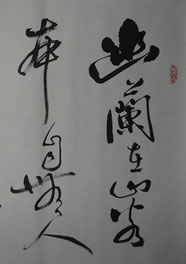 幽蘭在山谷
本自無人